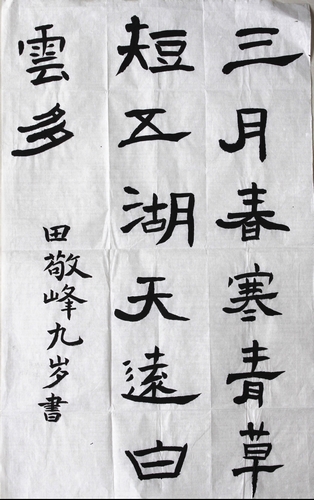 三月春寒青草
短五湖天遠白
雲多
田敬峰九岁書